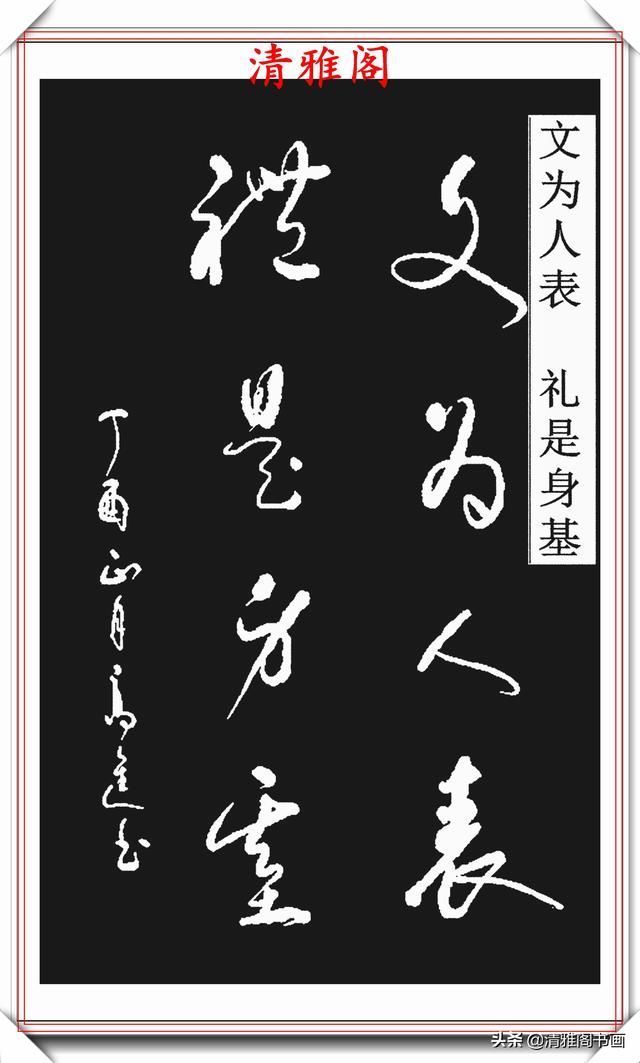 清雅阁
文为人表 礼是身基
文为人表
禮是身基
丁酉正月高進书
头条@清雅阁书画